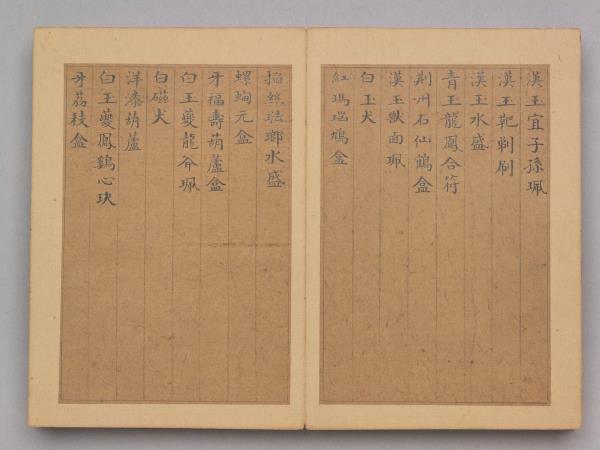 漢玉宜子孫珮
漢玉靶剃刷
漢玉水盛
青玉龍鳳合符
荆州石仙鶴盒
漢玉獸面珮
白玉犬
紅瑪瑙鳩盒
掐絲琺瑯水盛
螺蜔元盒
牙福壽葫蘆盒
白玉夔龍斧珮
白磁犬
洋漆葫蘆
白玉夔鳳鷄心玦
牙荔枝盒